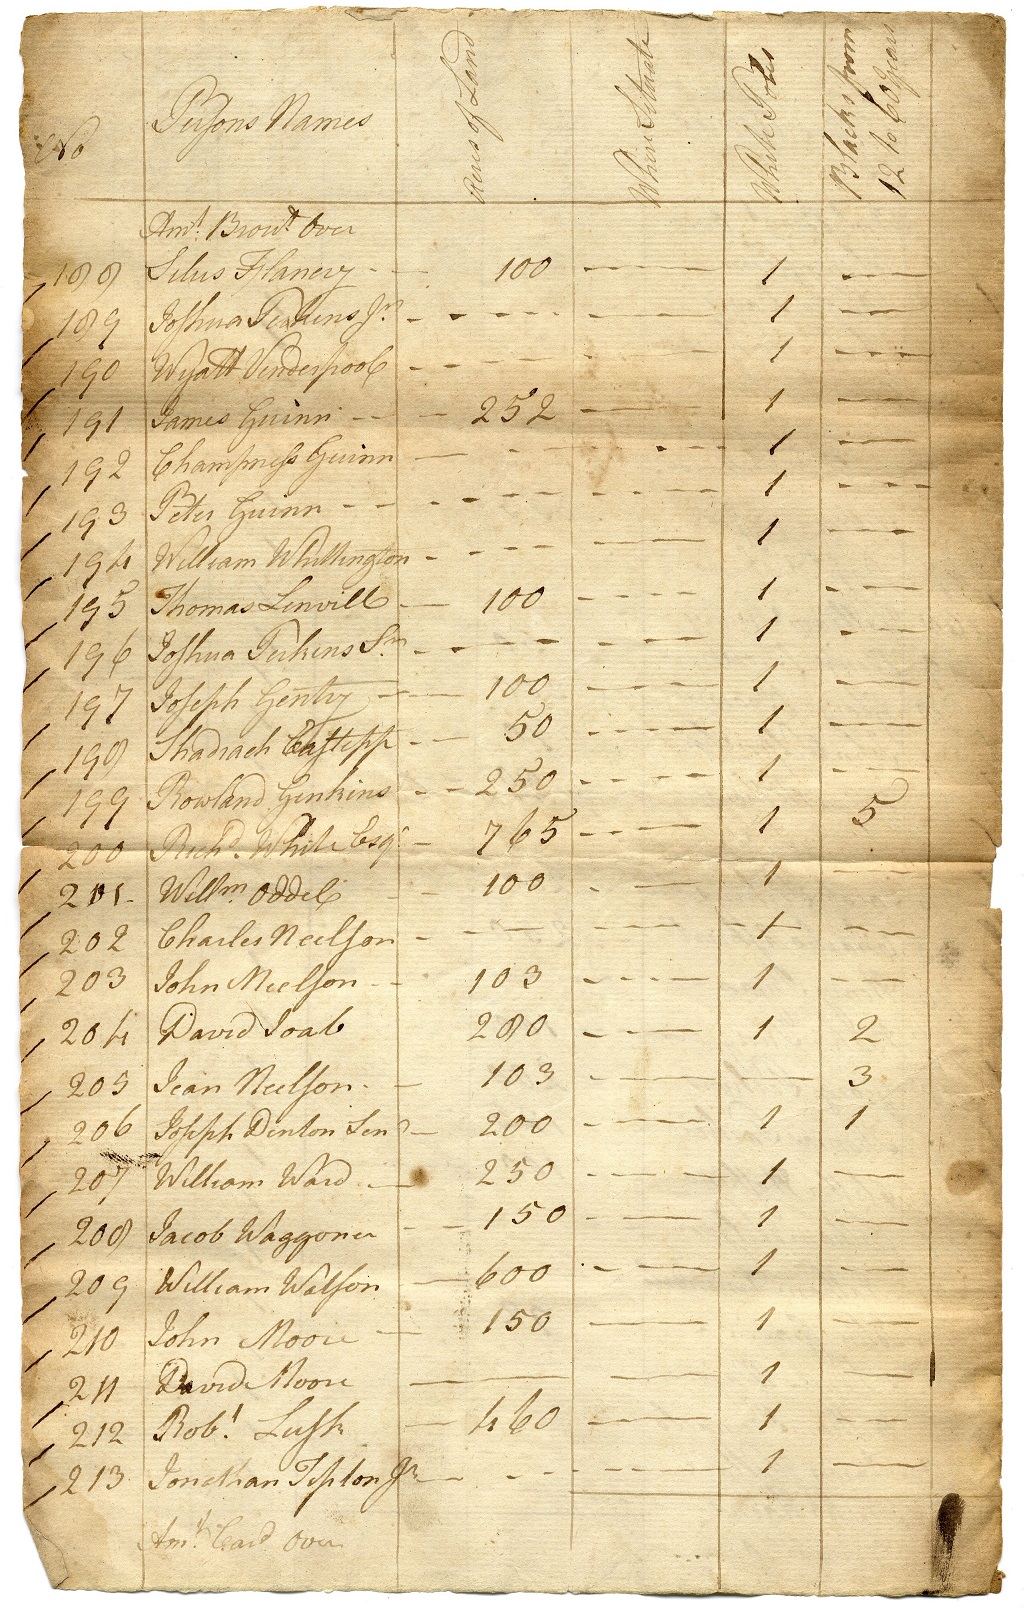 No Persons Names Acres of Land Where Situate White Poles Blacks from 12 to 60 years
Amt. Brout. Over
188 Silus Flanery 100 1
189 Joshua Perkins Jr. 1
190 Wyatt Venderpool 1
191 James Guinn 252 1
192 Champness Guinn 1
193 Peter Guinn 1
194 William Whittington 1
195 Thomas Linvill 100 1
196 Joshua Perkins Sr. 1
197 Joseph Gentry 100 1
198 Shadrach Casteepp 50 1
199 Rowland Genkins 250 1
200 Richd. White Esqr. 765 1 5
201 Willm. Oddel 100 1
202 Charles Neelson 1
203 John Neelson 103 1
204 David Joab 280 1 2
205 Jean Neelson 103 3
206 Joseph Denton Senr 200 1 1
207 William Ward 250 1
208 Jacob Waggoner 150 1
209 William Watson 600 1
210 John Moore 150 1
211 David Moore 1
212 Robt. Lusk 460 1
213 Jonathan Tipton Jr 1
Amt Card Over